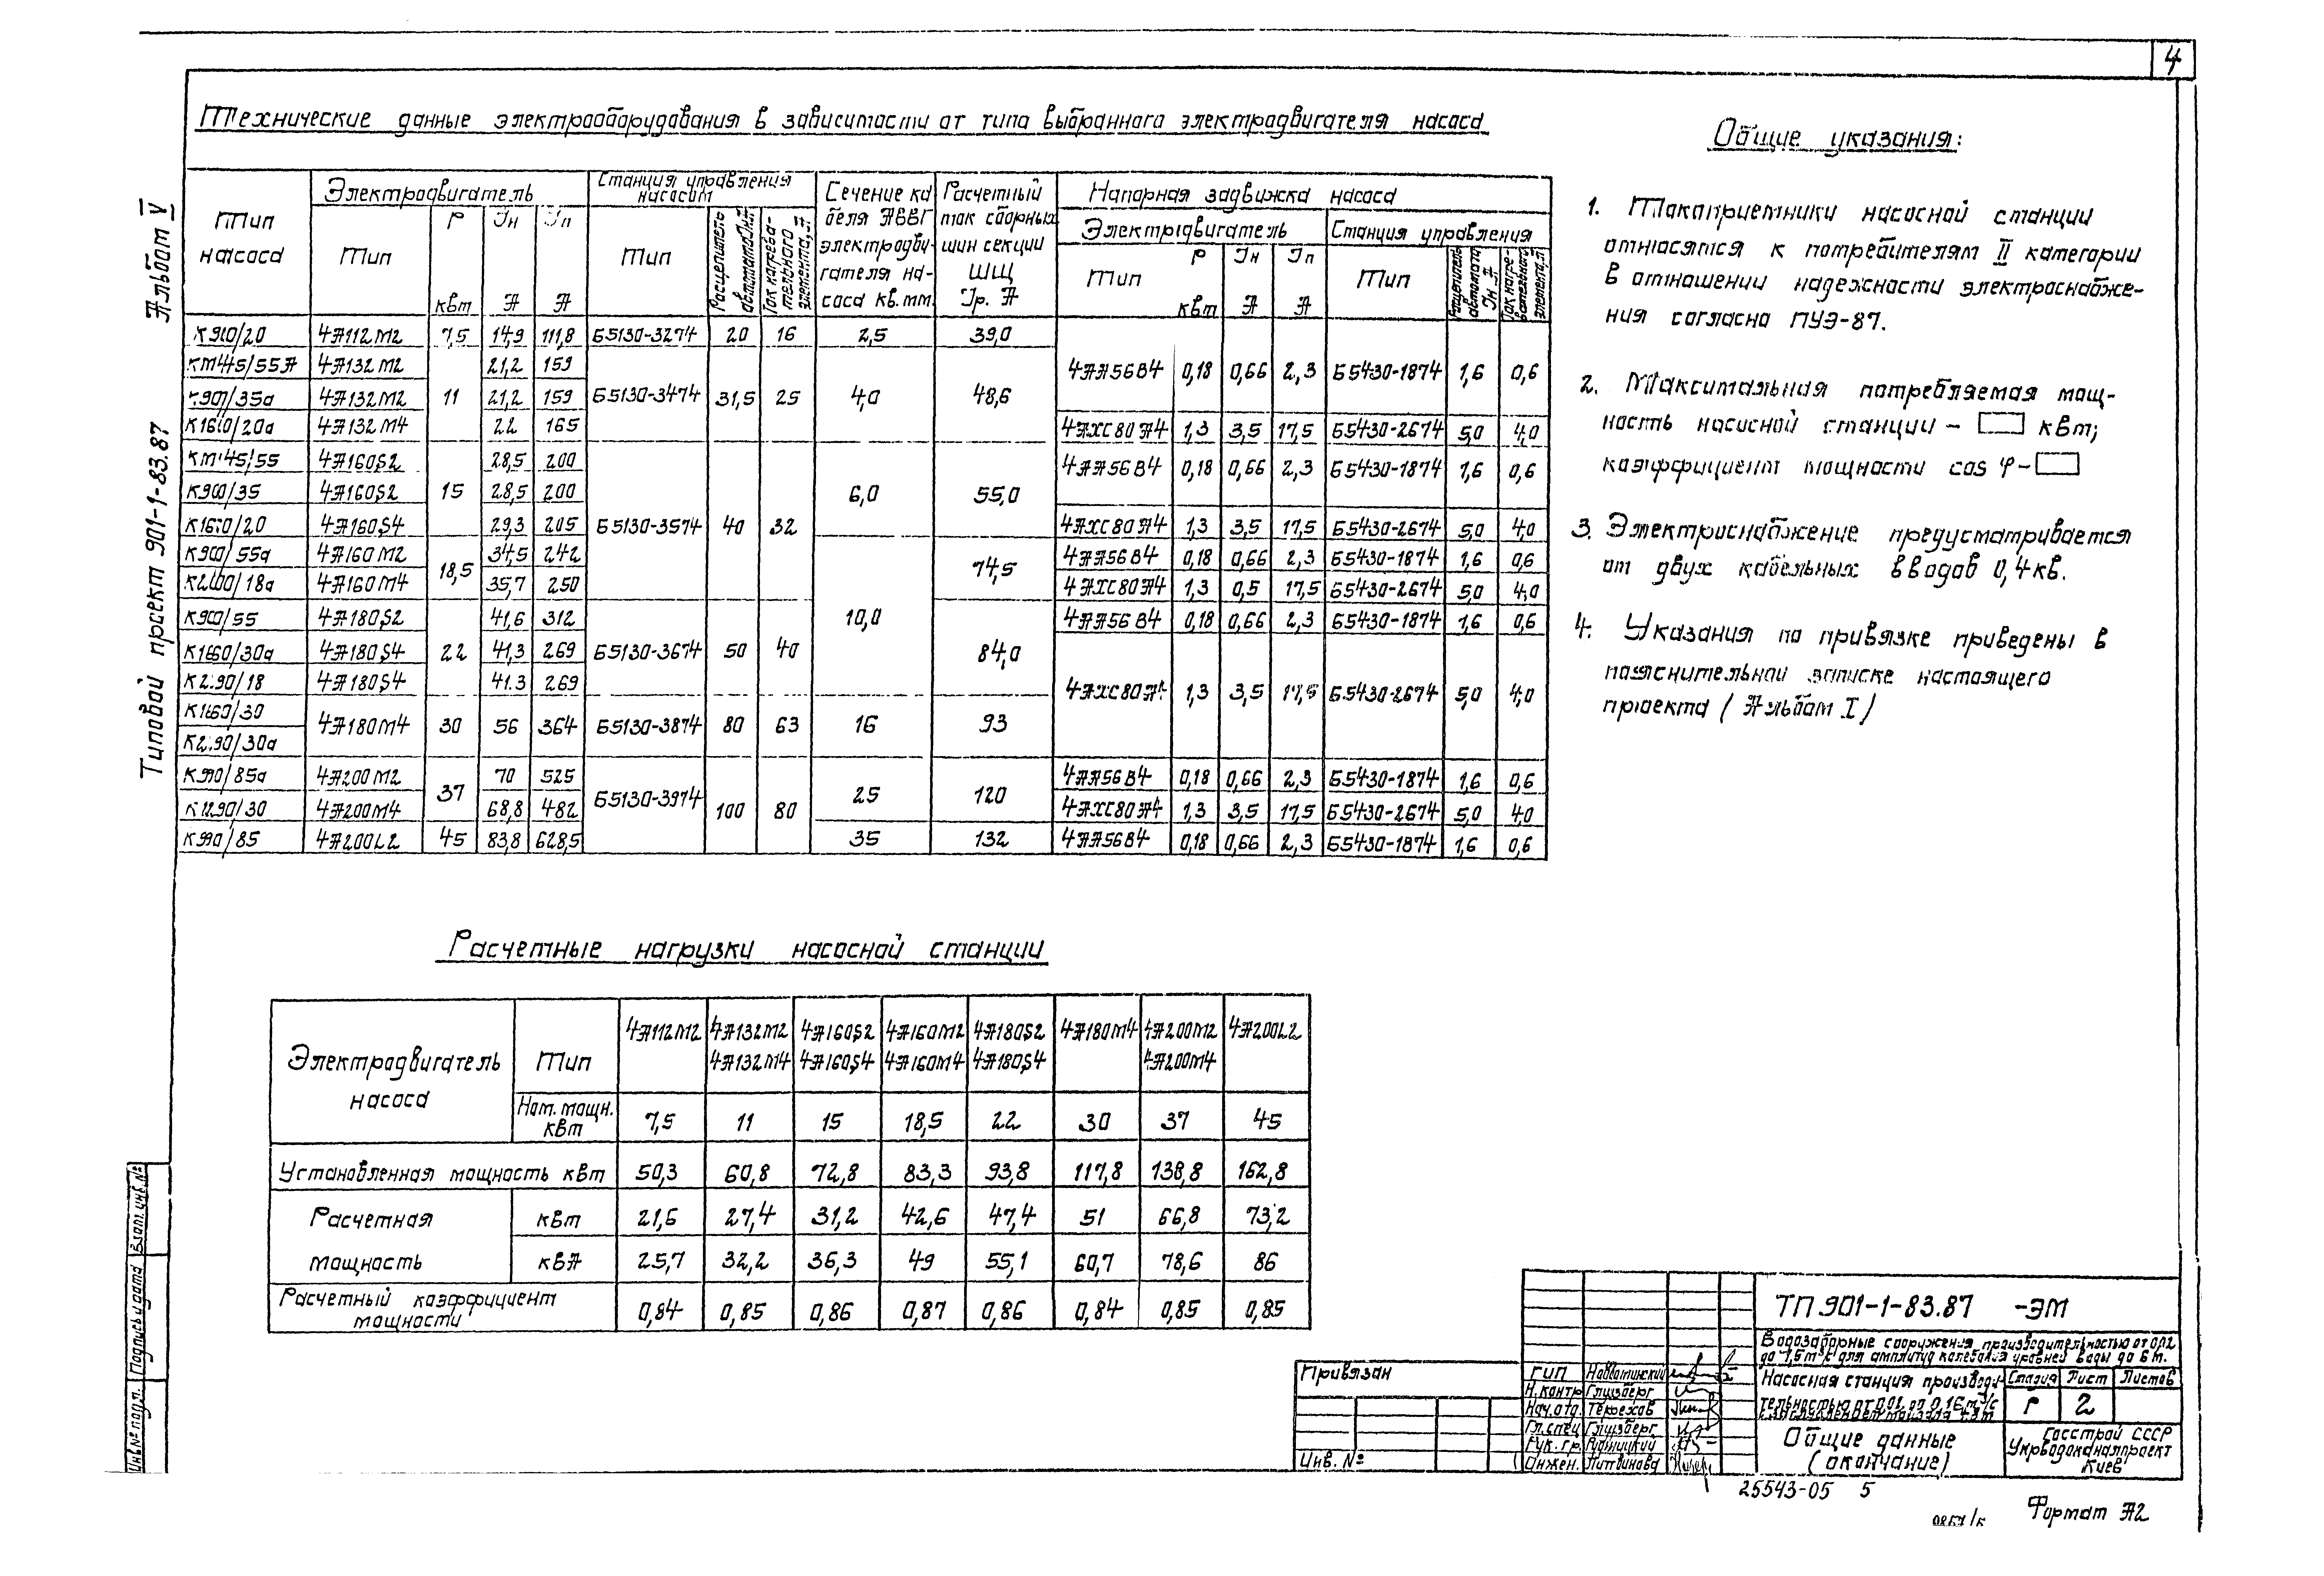 4
Альбом V
Типовой проект 901-1-83.87
Технические данные электрооборудования в зависимости от типа выбранного электродвигателя насоса
Тип насоса
Электродвигатель
Тип
Р квт
Iн А
Iп А
Станция управления насосом
Тип
Расцепитель автомата Iн А
Ток нагревательного элемента, А
Сечение кабеля АВВГ электродвигателя насоса кв.мм.
Расчетный ток сборных шин секции ШЩ Iр. А
Напорная задвижка насоса
Электродвигатель
Станция управления
Тип
Р квт
Iн А
Iп А
Тип
Расцепитель автомата Iн А
Ток нагревательного элемента, А
К90/20 4А112М2 7,5 14,9 111,8 Б5130-3274 20 16 2,5 39,0
КМ45/55А 4А132М2 21,2 159
4АА56В4 0,18 0,66 2,3 Б5430-1874 1,6 0,6
К90/35а 4А132М2 11 21,2 159 Б5130-3474 31,5 25 4,0 48,6
К160/20а 4А132М4 22 165 4АХС80А4 1,3 3,5 17,5 Б5430-2674 5,0 4,0
КМ45/55 4А160S2 28,5 200 4АА56В4 0,18 0,66 2,3 Б5430-1874 1,6 0,6
К90/35 4А160S2 15 28,5 200 6,0 55,0
К160/20 4А160S4 29,3 205 Б5130-3574 40 32 4АХС80А4 1,3 3,5 17,5 Б5430-2674 5,0 4,0
К90/55а 4А160М2 18,5 34,5 242 74,5 4АА56В4 0,18 0,66 2,3 Б5430-1874 1,6 0,6
К290/18а 4А160М4 35,7 250 4АХС80А4 1,3 0,5 17,5 Б5430-2674 5,0 4,0
К90/55 4А180S2 41,6 312 10,0 4АА56В4 0,18 0,66 2,3 Б5430-1874 1,6 0,6
К160/30а 4А180S4 22 41,3 269 Б5130-3674 50 40 84,0
К290/18 4А180S4 41.3 269 4АХС80А4 1,3 3,5 17,5 Б5430-2674 5,0 4,0
К160/30 4А180М4 30 56 364 Б5130-3874 80 63 16 93
К290/30а
К90/85а 4А200М2 37 70 525 Б5130-3974 100 80 25 120 4АА56В4 0,18 0,66 2,3 Б5430-1874 1,6 0,6
К290/30 4А200М4 68,8 482 4АХС80А4 1,3 3,5 17,5 Б5430-2674 5,0 4,0
К90/85 4А200L2 45 83,8 628,5 35 132 4АА56В4 0,18 0,66 2,3 Б5430-1874 1,6 0,6
Общие указания:
1. Токоприемники насосной станции
относятся к потребителям II категории
в отношении надежности электроснабже-
ния согласно ПУЭ-87.
2. Максимальная потребляемая мощ-
ность насосной станции - квт;
коэффициент мощности cos φ -
3. Электроснабжение предусматривается
от двух кабельных вводов 0,4 кв.
4. Указания по привязке приведены в
пояснительной записке настоящего
проекта (Альбом I)
Расчетные нагрузки насосной станции
Электродвигатель насоса
Тип 4А112М2 4А132М2 4А160S2 4А160М2 4А180S2 4А180М4 4А200М2 4А200L2
4А132М4 4А160S4 4А160М4 4А180S4 4А200М4
Ном. мощн. квт 7,5 11 15 18,5 22 30 37 45
Установленная мощность квт 50,3 60,8 72,8 83,3 93,8 117,8 138,8 162,8
Расчетная мощность
квт 21,6 27,4 31,2 42,6 47,4 51 66,8 73,2
квА 25,7 32,2 36,3 49 55,1 60,7 78,6 86
Расчетный коэффициент мощности 0,84 0,85 0,86 0,87 0,86 0,84 0,85 0,85
Взам. инв. №
Подпись и дата
Инв № подл.
Привязан
Инв. №
ГИП
Н. контр Глузберг
Нач. отд. Терехов
Гл. спец Глузберг
Рук. гр. Рудницкий
Инжен. Литвинова
ТП 901-1-83.87 -ЭМ
Водозаборные сооружения производительностью от 0,02
до 1,5 м³/с для амплитуд колебания уровней воды до 6 м.
Насосная станция производи-
тельностью от 0,02 до 0,16 м³/с
Стадия Лист Листов
Р 2
Общие данные
(окончание)
Госстрой СССР
Укрводоканалпроект
Киев
25543-05 5
Формат А2